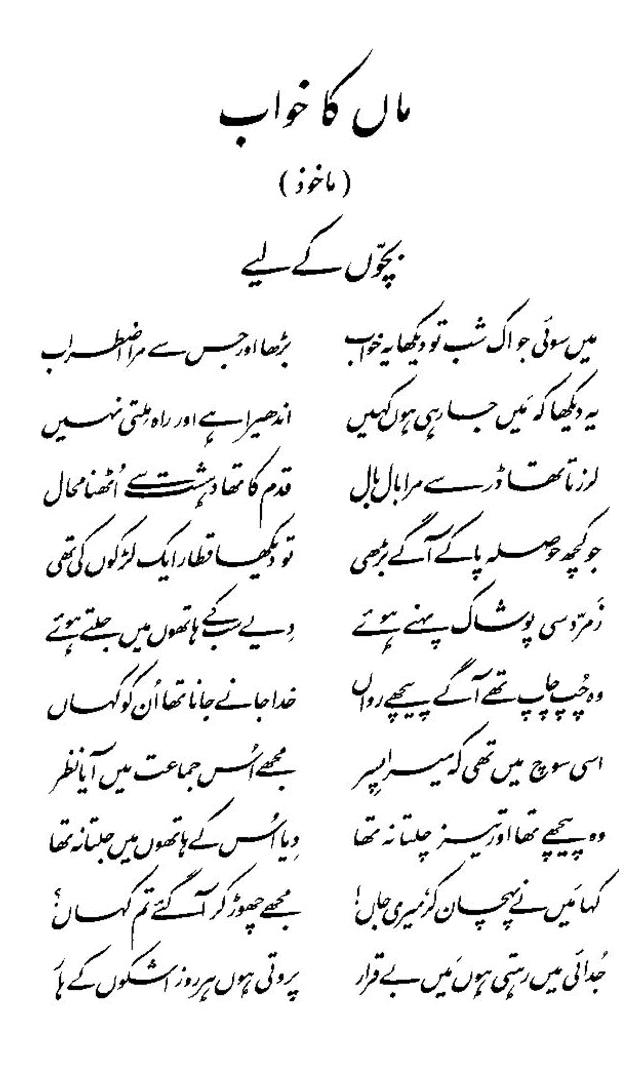 ماں کا خواب
(ماخوذ)
بچّوں کے لیے
میں سوئی جو اک شب تو دیکھا یہ خواب بڑھا اور جس سے مرا اضطراب
یہ دیکھا کہ مَیں جا رہی ہوں کہیں اندھیرا ہے اور راہ ملتی نہیں
لرزتا تھا ڈر سے مرا بال بال قدم کا تھا دہشت سے اُٹھنا محال
جو کچھ حوصلہ پا کے آگے بڑھی تو دیکھا قطار ایک لڑکوں کی تھی
زَمرّد سی پوشاک پہنے ہوئے دِیے سب کے ہاتھوں میں جلتے ہوئے
وہ چُپ چاپ تھے آگے پیچھے رواں خدا جانے جانا تھا اُن کو کہاں
اسی سوچ میں تھی کہ میرا پسر مجھے اُس جماعت میں آیا نظر
وہ پیچھے تھا اور تیز چلتا نہ تھا دِیا اُس کے ہاتھوں میں جلتا نہ تھا
کہا مَیں نے پہچان کر میری جاں! مجھے چھوڑ کر آ گئے تم کہاں؟
جُدائی میں رہتی ہوں مَیں بے قرار پروتی ہوں ہر روز اشکوں کے